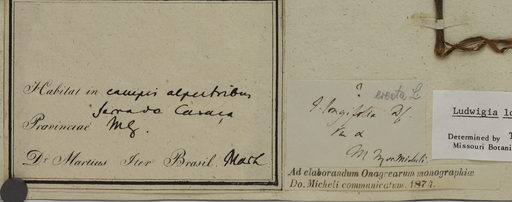 Habitat in campis alpestribus
Serra do Caraça
Provinciae MG.
Dr. Martius Iter Brasil. Mart
?
erecta L
J. longifolia DC.
Var α
M. Micheli
Ad elaborandum Onagrearum monographiæ
Do. Micheli communicatum. 1874.
Ludwigia lo
Determined by T
Missouri Botani